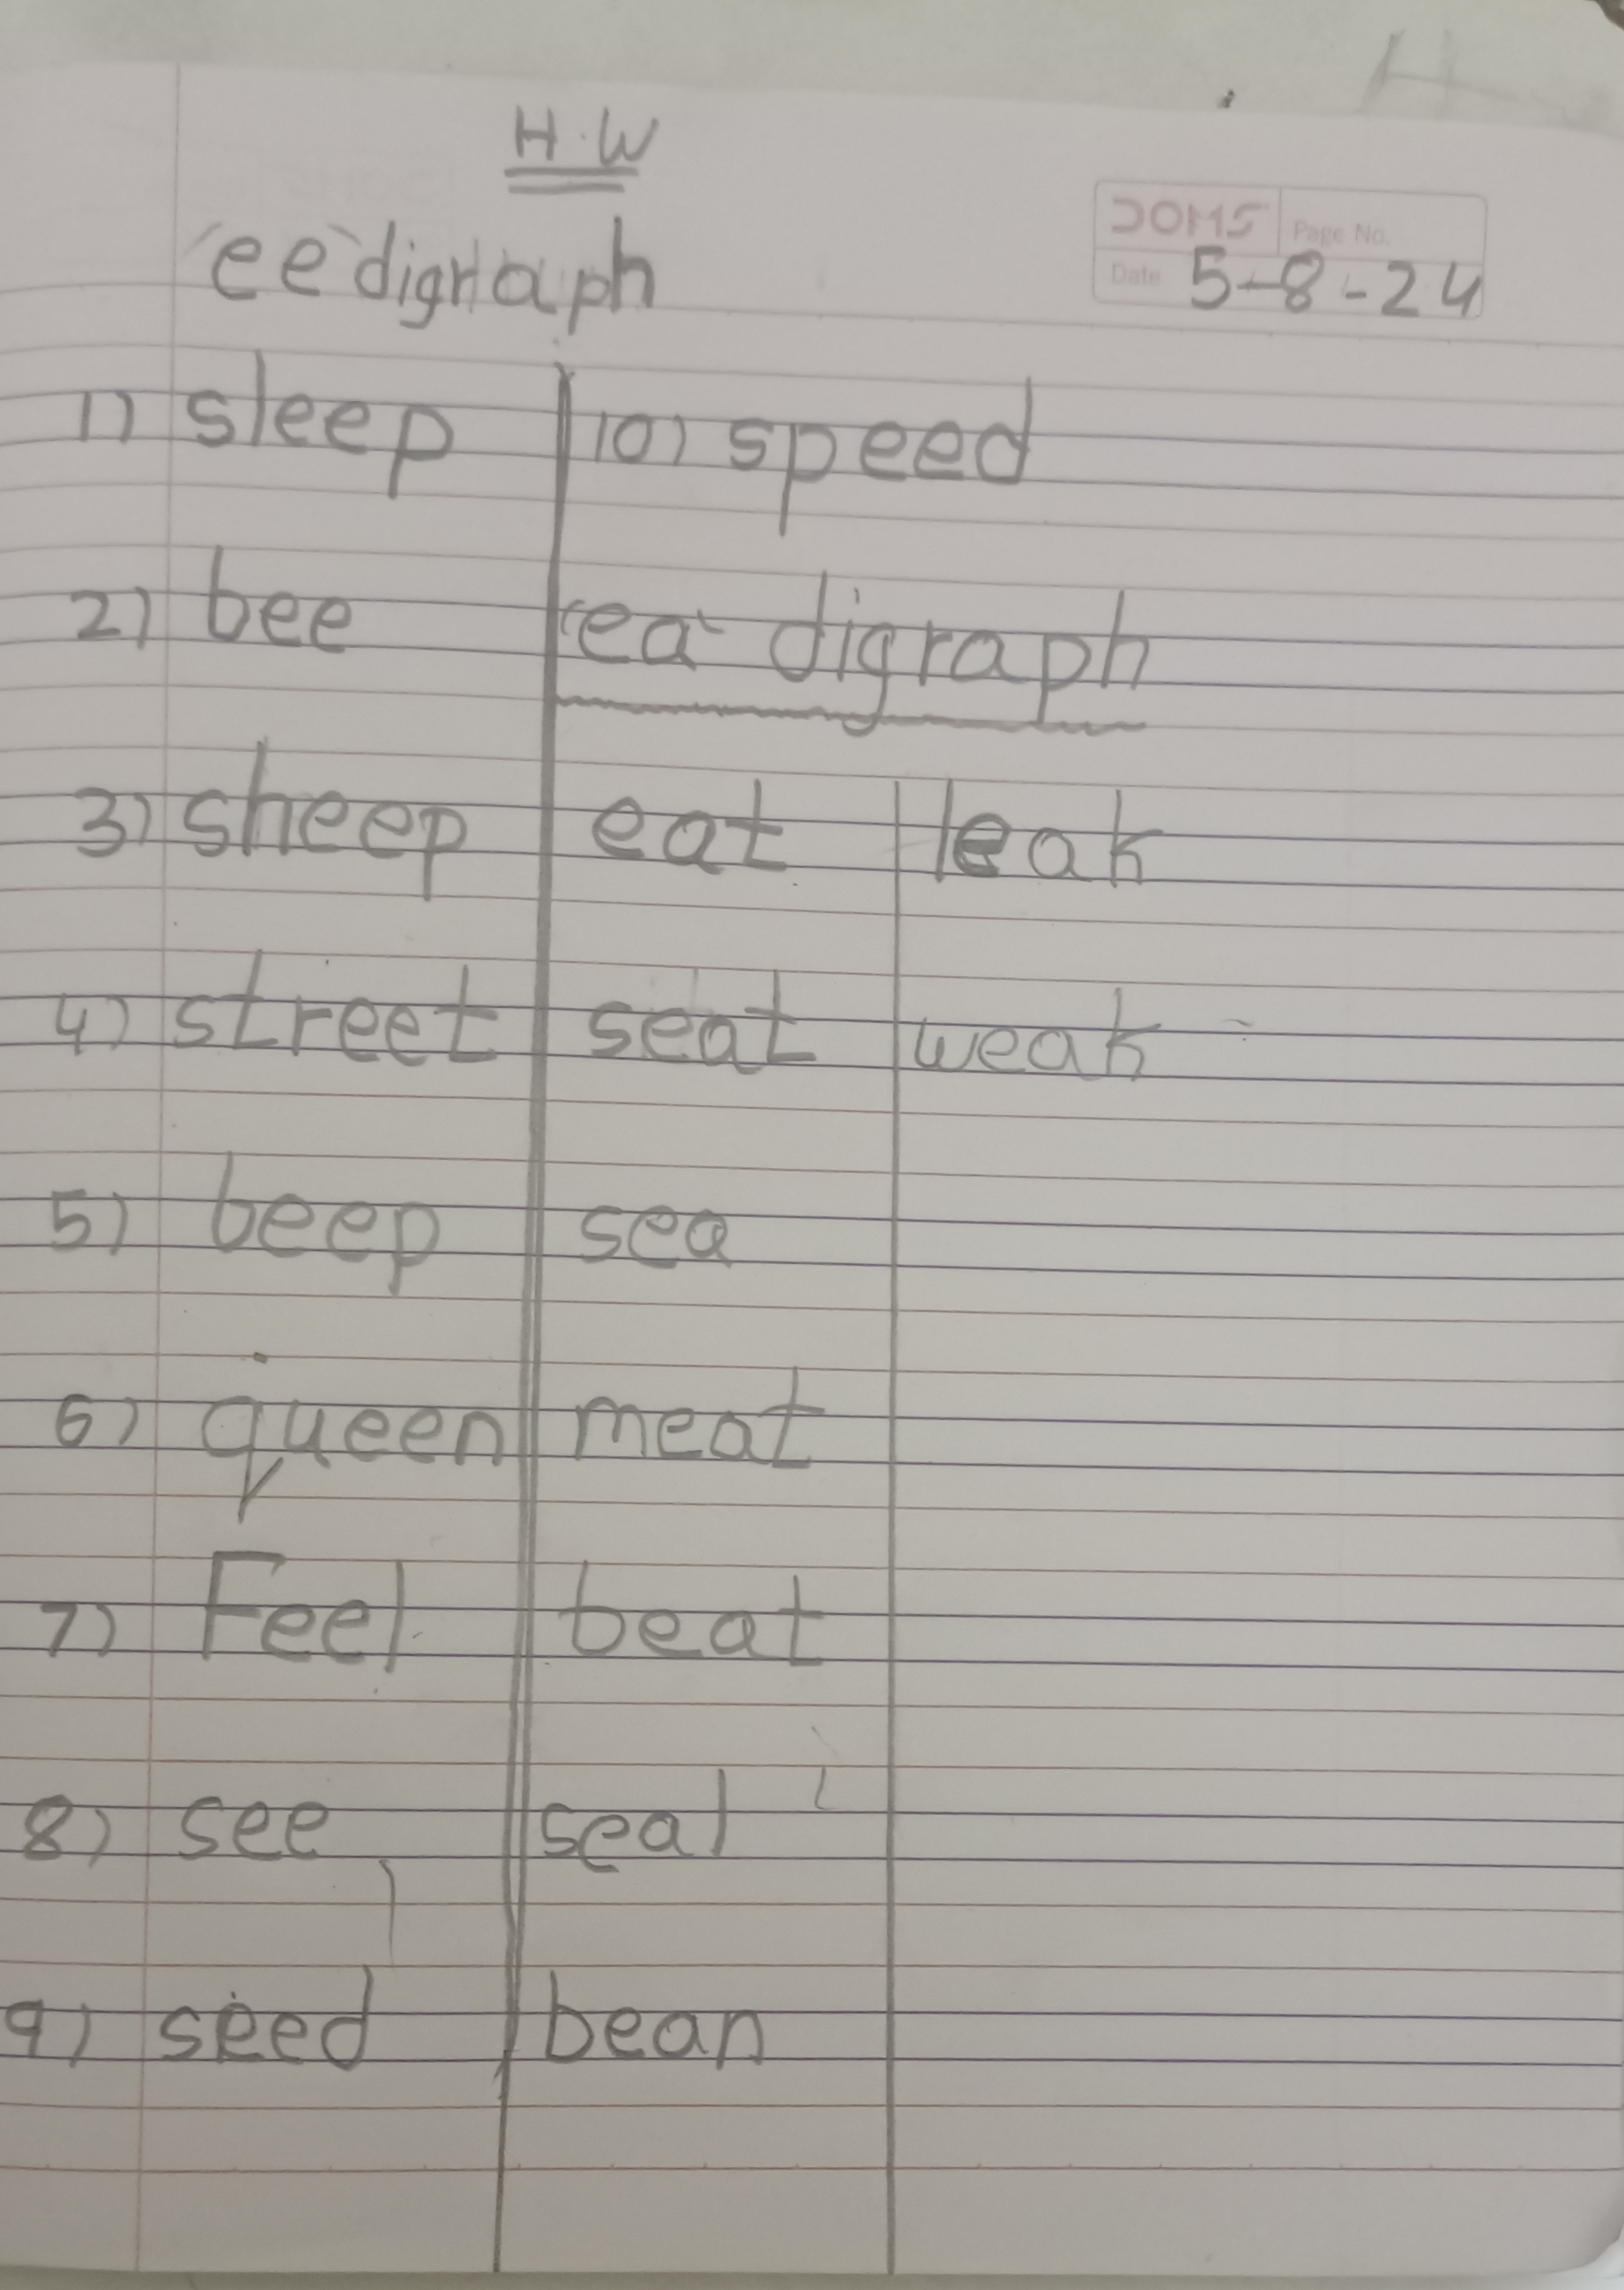 H.W
DOMS Page No.
Date 5-8-24
'ee' digraph
1) sleep
2) bee
3) sheep
4) street
5) beep
6) queen
7) Feel
8) see
9) seed
10) speed
'ea' digraph
eat
seat
sea
meat
beat
seal
bean
leak
weak